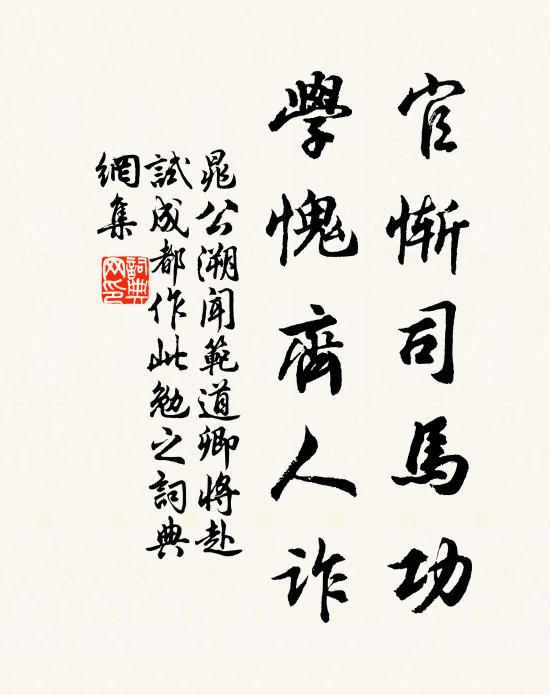 官慚司馬功
學愧齊人詐
晁公溯聞範道卿將赴
試成都作此勉之詞典
網集
詞典
网印